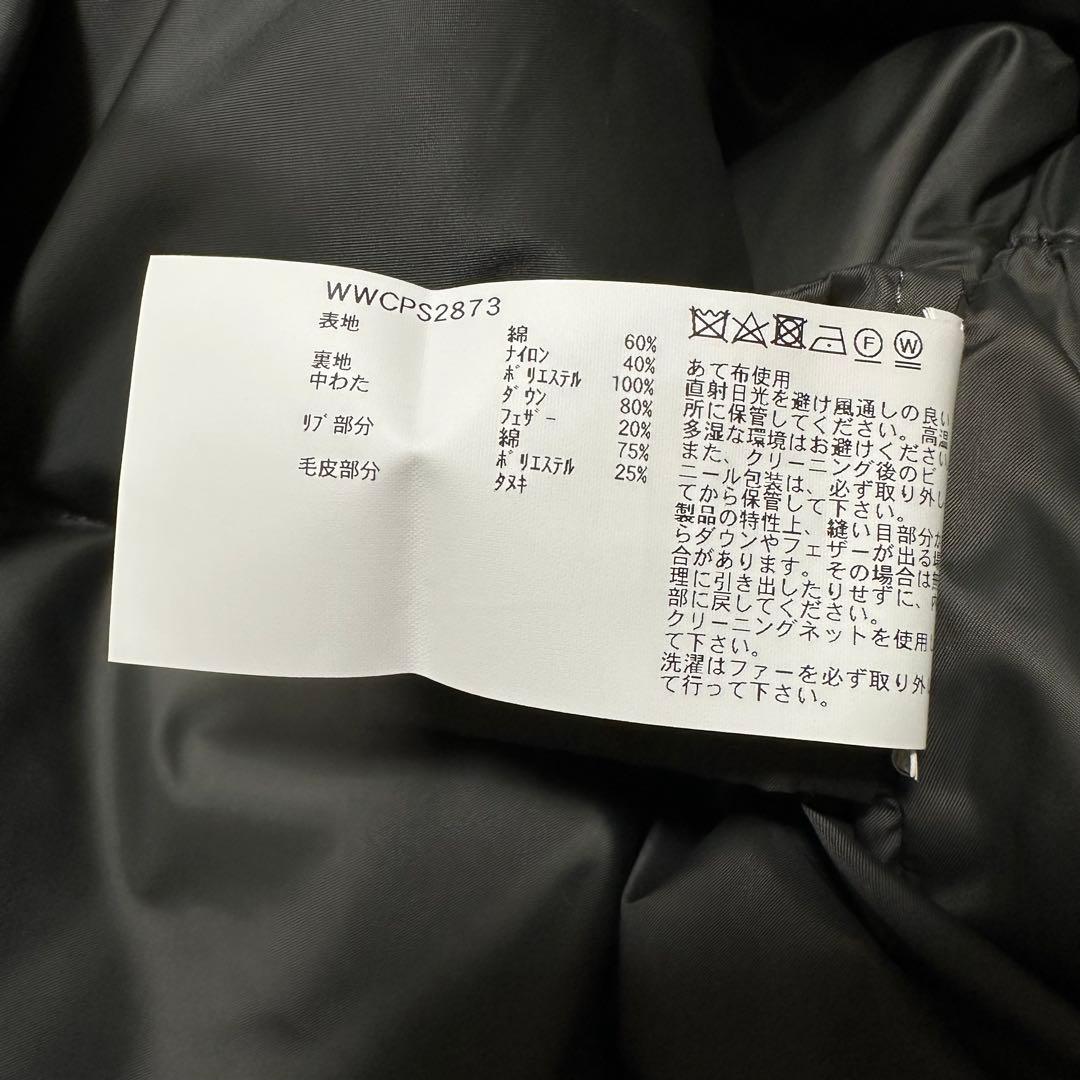 WWCPS2873
表地 綿 60%
ナイロン 40%
裏地 ポリエステル 100%
中わた ダウン 80%
フェザー 20%
リブ部分 綿 75%
ポリエステル 25%
毛皮部分 タヌキ
F W
あて布使用
直射日光を避け風通しの良い
所に保管してください。高温
多湿な環境はお避けください
また、クリーニング後のビ
ニール包装は、必ず取り外し
てから保管して下さい。
製品の特性上、縫い目部分か
らダウンやフェザーが出る場
合があります。その場合は無
理に引き出したりせずに、内
部に戻してください。
クリーニングネットを使用し
て下さい。
洗濯はファーを必ず取り外し
て行って下さい。